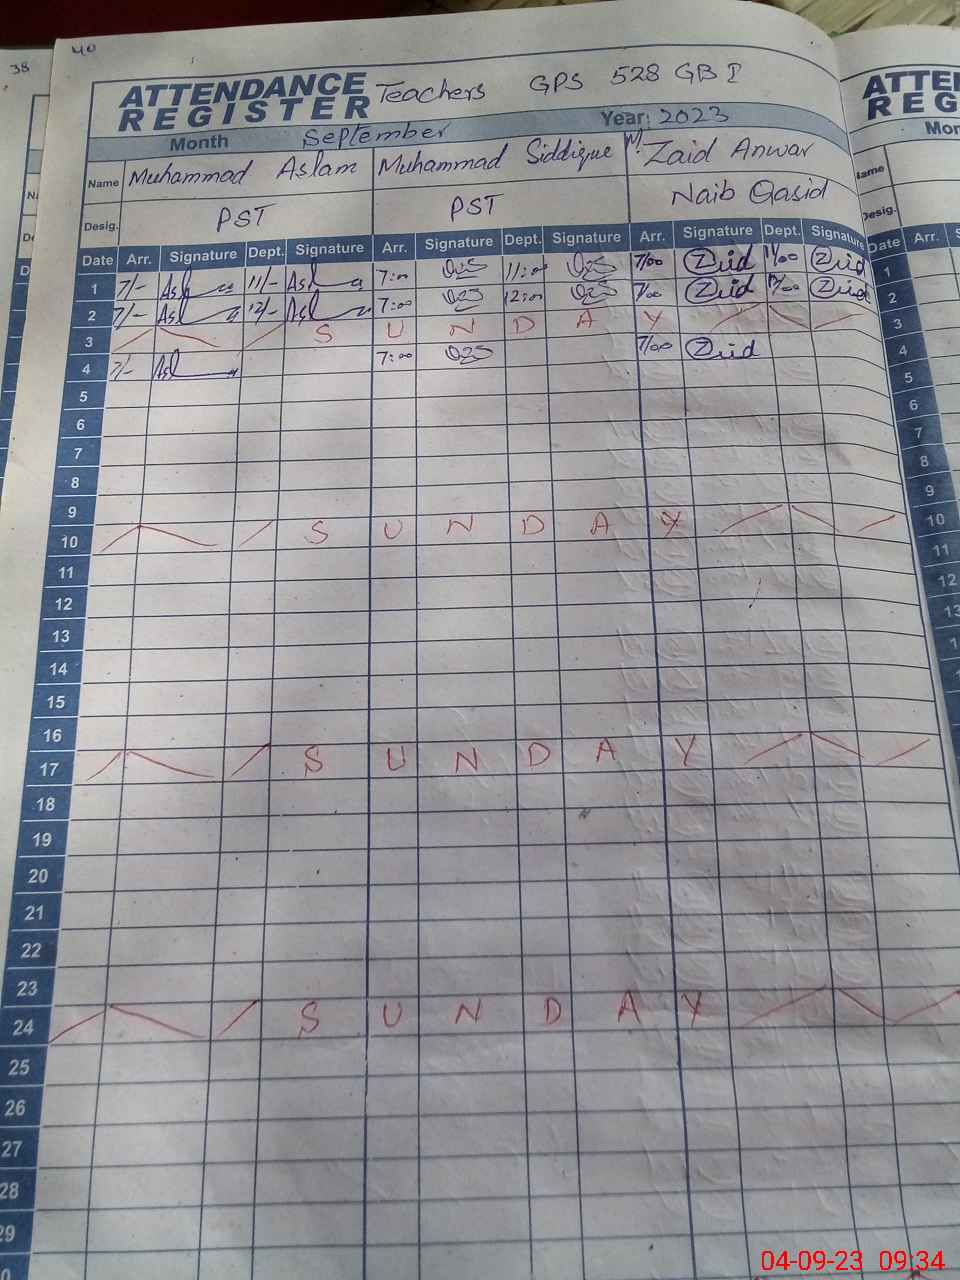 40
38
ATTENDANCE REGISTER Teachers GPS 528 GB I
Month September Year: 2023
Name Muhammad Aslam Muhammad Siddique M. Zaid Anwar
Desig. PST PST Naib Qasid
Date Arr. Signature Dept. Signature Arr. Signature Dept. Signature Arr. Signature Dept. Signature
1 7/- Asl 11/- Asl 7:00 11:00 7/00 Zaid 11/00 Zaid
2 7/- Asl 12/- Asl 7:00 12:00 7/00 Zaid 12/00 Zaid
3 S U N D A Y
4 7/- Asl 7:00 7/00 Zaid
5
6
7
8
9
10 S U N D A Y
11
12
13
14
15
16
17 S U N D A Y
18
19
20
21
22
23
24 S U N D A Y
25
26
27
28
29
ATTE
REG
Mon
Name
Desig.
Date Arr. S
1
2
3
4
5
6
7
8
9
10
11
12
13
04-09-23 09:34